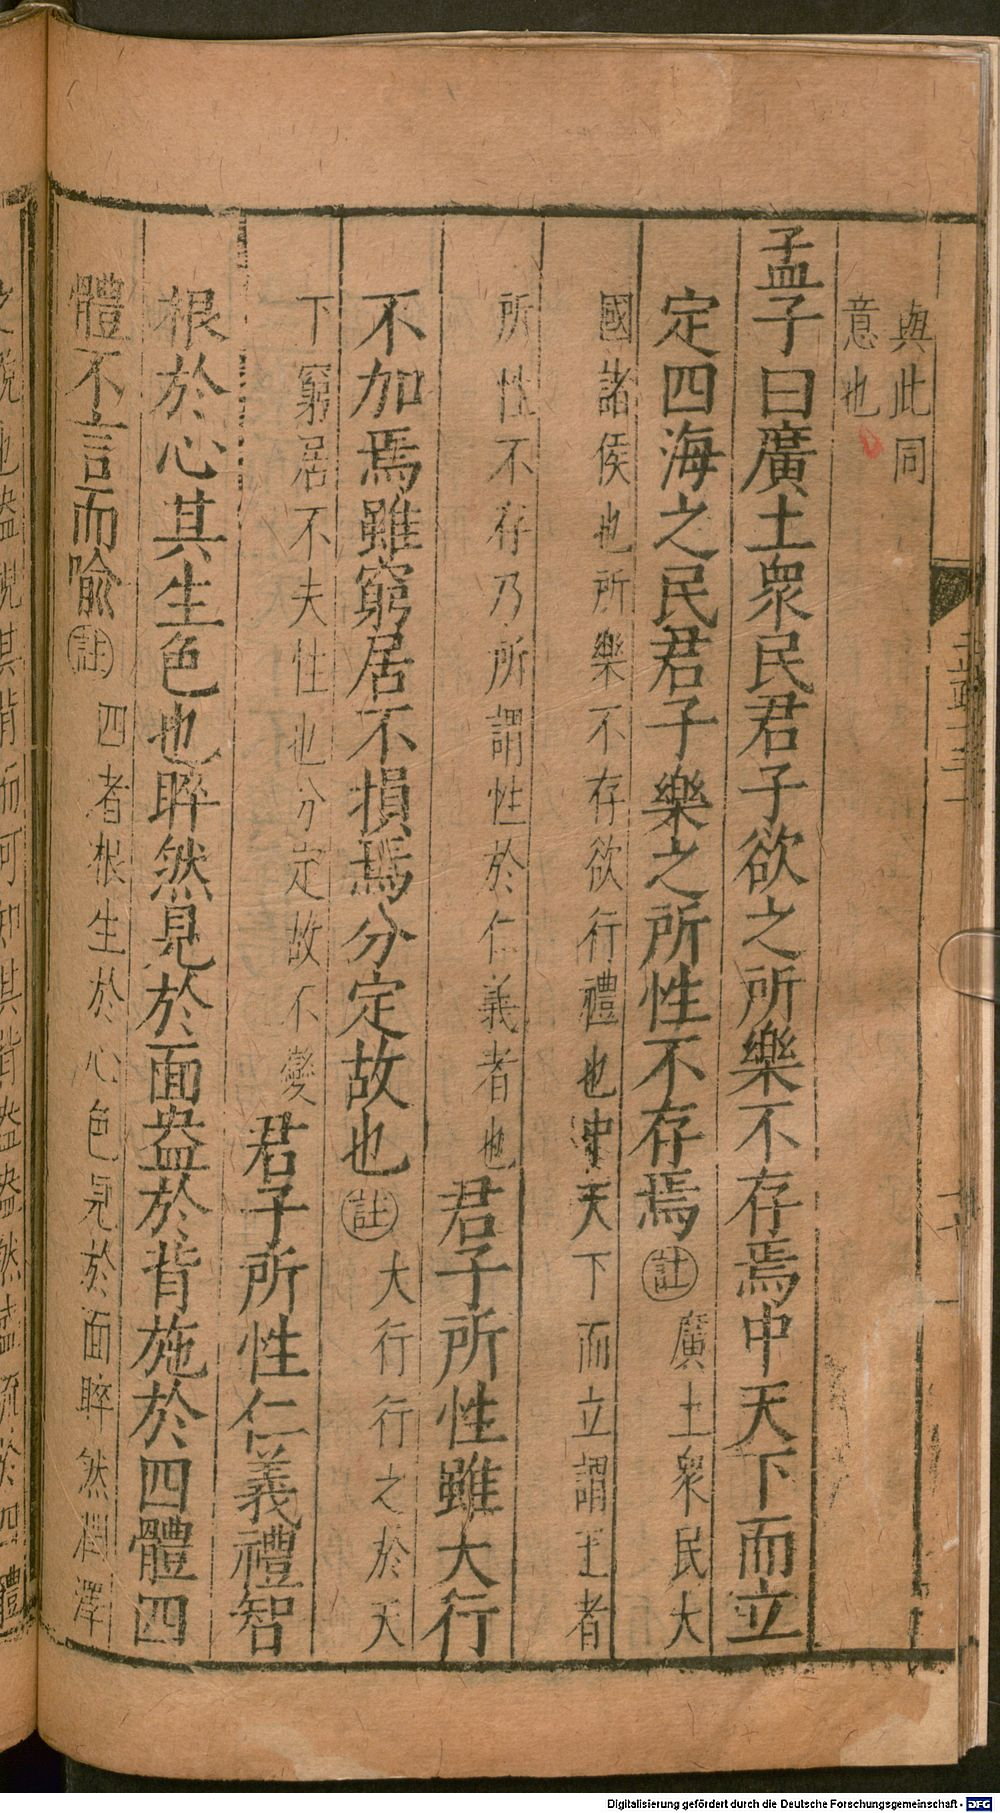 與此同
意也
孟子曰廣土衆民君子欲之所樂不存焉中天下而立
定四海之民君子樂之所性不存焉註廣土衆民大
國諸侯也所樂不存欲行禮也中天下而立謂王者
所性不存乃所謂性於仁義者也君子所性雖大行
不加焉雖窮居不損焉分定故也註大行行之於天
下窮居不夫性也分定故不變君子所性仁義禮智
根於心其生色也睟然見於面盎於背施於四體四
體不言而喻註四者根生於心色見於面睟然潤澤
之貌也盎視其背而可知其背盎盎然盛流於四體
Digitalisierung gefördert durch die Deutsche Forschungsgemeinschaft - DFG